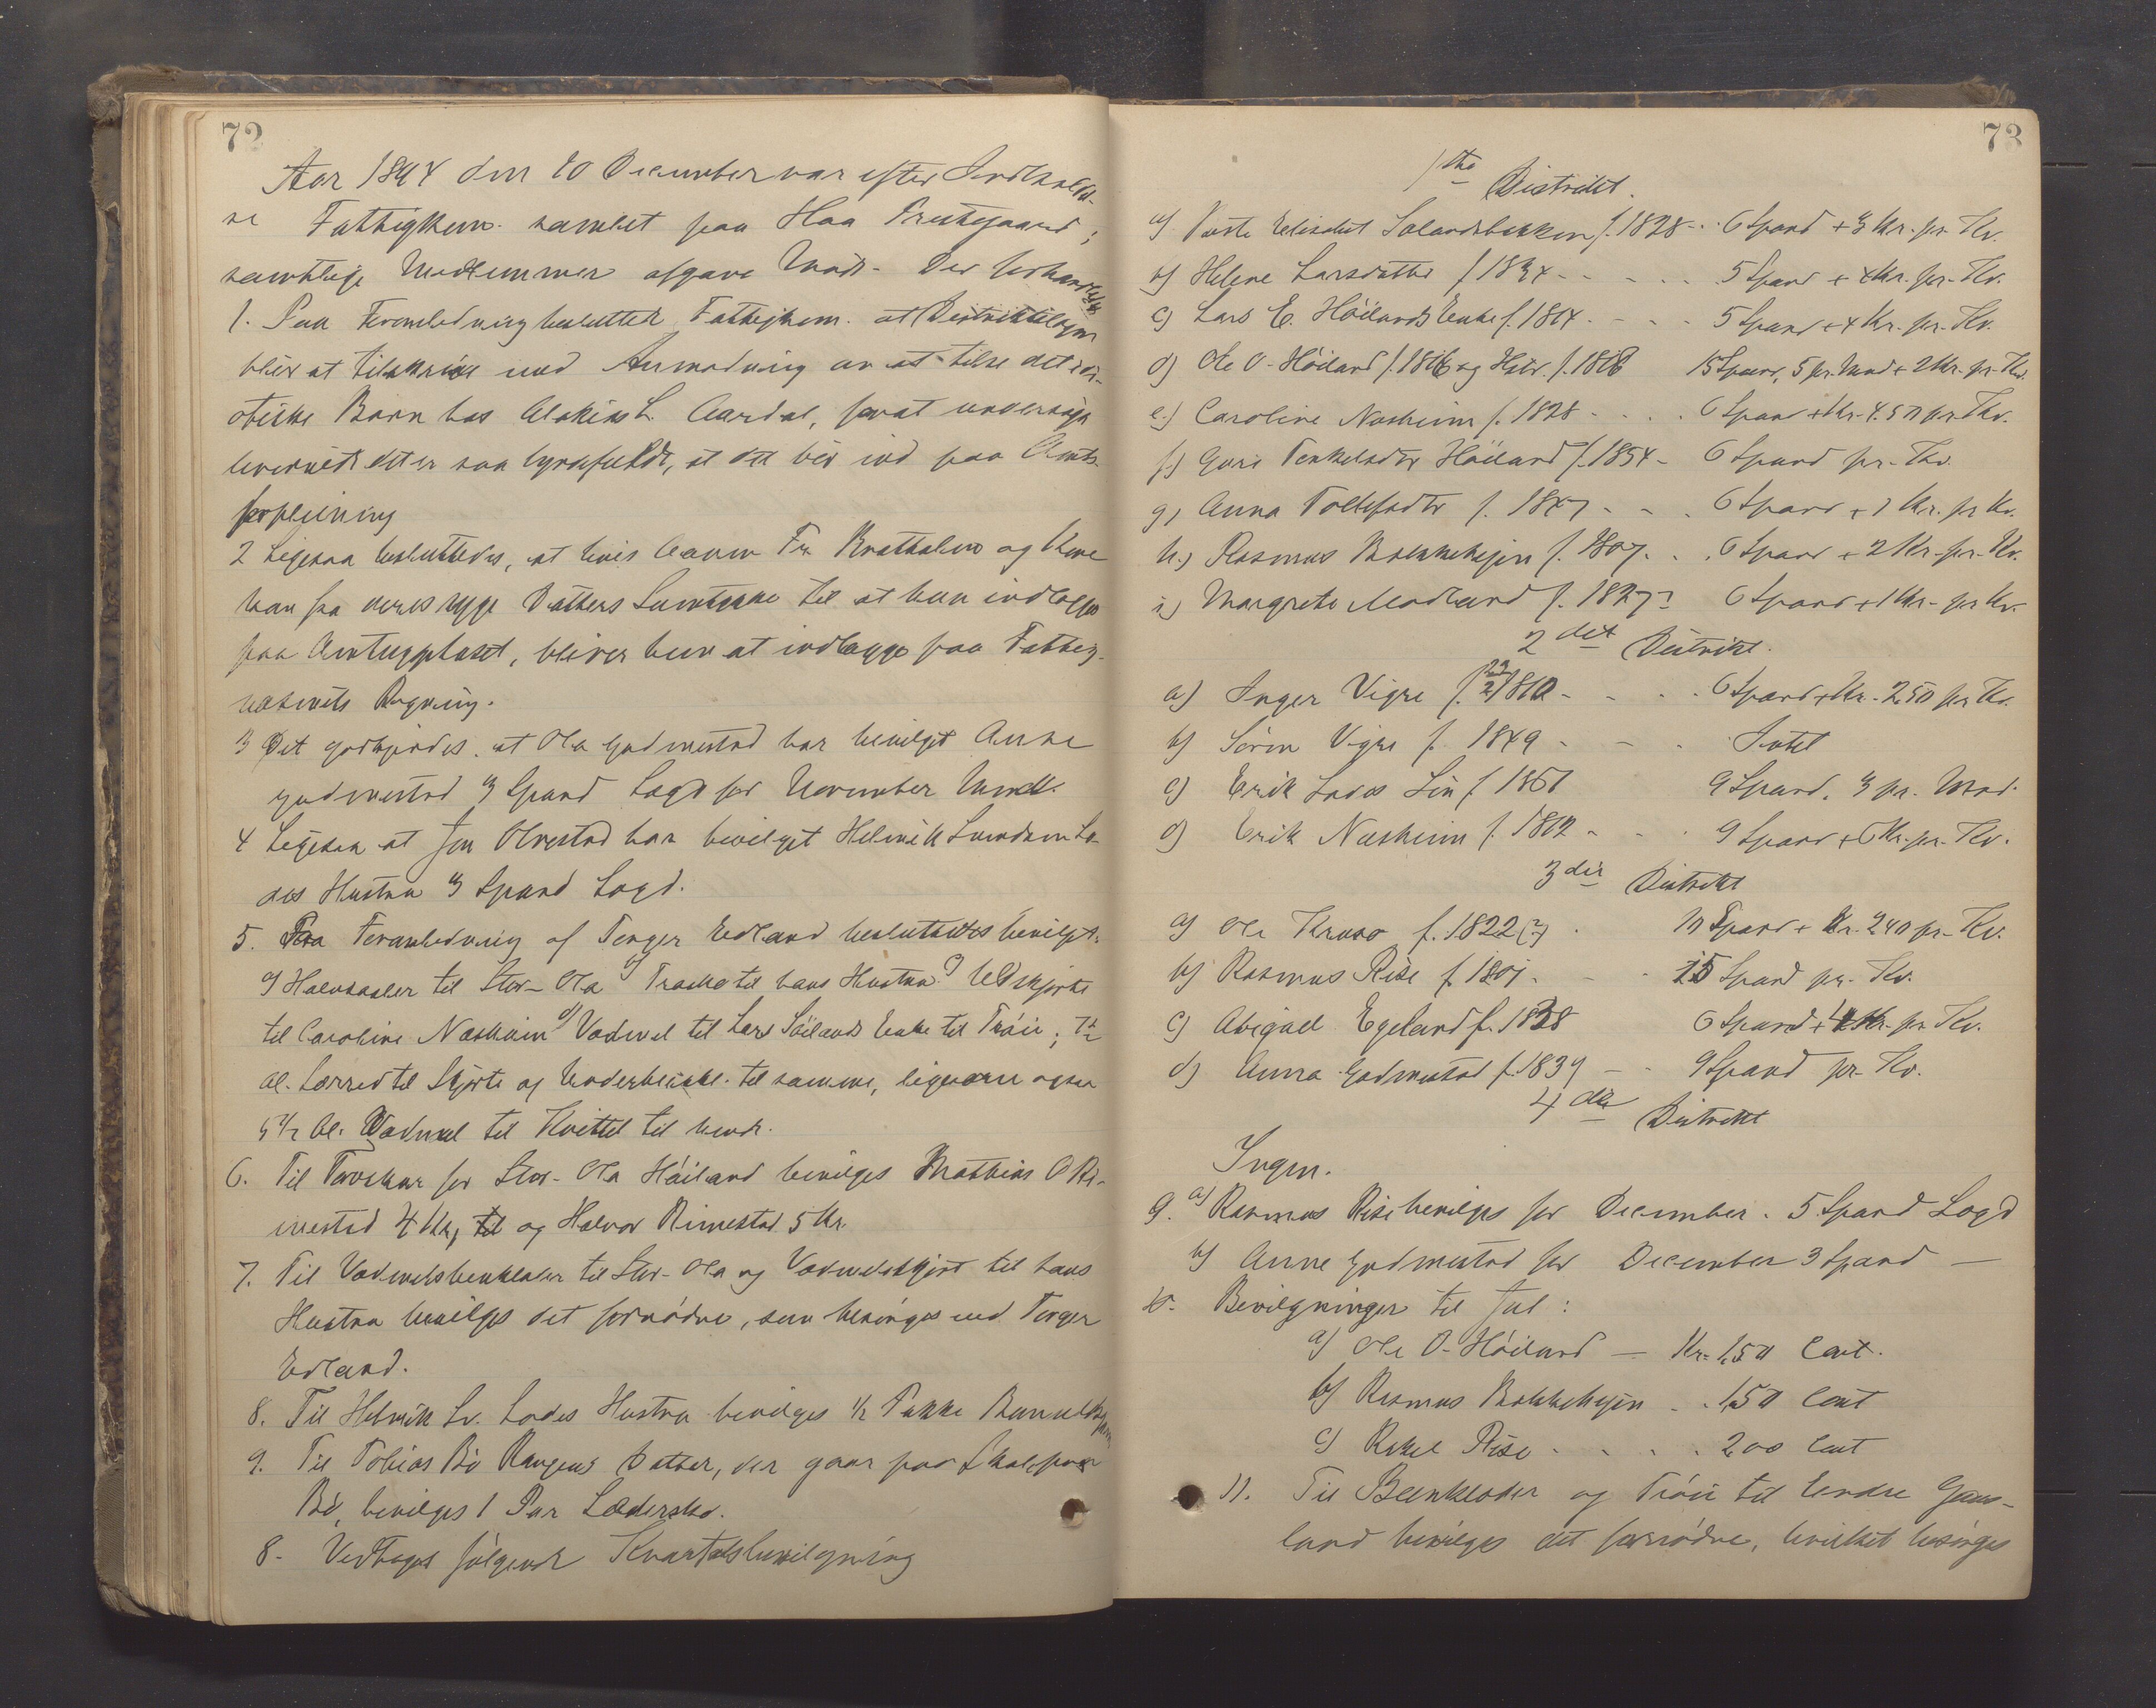 72
Aar 1894 den 10 December var efter Indkaldel-
se Fattigkom. samlet paa Haa Prestegaard;
samtlige Medlemmer afgave Møde. Der forhandledes
1. Paa Foranledning besluttede Fattigkom. at Distriktslægen
bliver at tilskrive med Anmodning om at tilse det idi-
otiske Barn hos Aardal, for at undersøge
hvorvidt det er saa byrdefuldt, at det bør ind paa Amts-
forpleining
2 Ligesaa besluttedes, at hvis Fr. Brattabø og Kone
kan faa deres syge Datters Samtykke til at hun indlægges
paa Amtssygehuset, bliver hun at indlægge paa Fattig-
væsenets Regning.
3 Det godkjendes at Ola Godmestad har bevilget Anne
Godmestad 3 Spand Logd for November Maaned.
4 Ligesaa at Jon Obrestad har bevilget Helmik Svendsen Lo-
des Hustru 3 Spand Logd.
5. Paa Foranledning af Torger Edland besluttedes bevilget:
a) Halvsaaler til Stor-Ola b) Traske til hans Hustru c) Uldskjorte
til Caroline Næsheim d) Vadmel til Lars Höilands Enke til Tröie; 7½
Al. Lærred til Skjorte og Underbenkl. til samme, ligesom ogsaa
5½ Al. Vadmel til Kvittel til hende.
6. Til Torvskur for Stor-Ola Höiland bevilges Mathias O Ri-
mestad 4 Kr, til og Halvor Rimestad 5 Kr.
7. Til Vadmelsbenklæder til Stor-Ola og Vadmelsskjørt til hans
Hustru bevilges det fornødne, som besørges ved Torger
Edland.
8. Til Helmik Sv. Lodes Hustru bevilges ½ Pakke Bomuldsgarn
9. Til Tobias Bö Haugens Datter, der gaar paa Skole paa
Bö, bevilges 1 Par Lædersko.
8. Vedtages følgende Kvartalsbevilgning
73
1ste Distrikt.
a) Elisabet Salandsbakken f. 1828 - . 6 Spand + 3 Kr. pr. Kv.
b) Helene Larsdatter f 1834 - - - - . 5 Spand + 4 Kr. pr. Kv.
c) Lars E. Höilands Enke f. 1814. - - - 5 Spand + 4 Kr. pr. Kv.
d) Ole O. Höiland f. 1816 og Hstr. f. 1818 15 Spand, 5 pr. Mnd + 2 Kr. pr. Kv.
e) Caroline Næsheim f. 1828 - . . . 6 Spand + Kr. 4.50 pr Kv.
f) Guri Tenkelsdtr Höiland f. 1854 - 6 Spand pr. Kv.
g) Anna Tollefsdtr f. 1847 - - . 6 Spand + 1 Kr. pr Kv.
h) Rasmus Bakkehejen f. 1807. - . 6 Spand + 2 Kr. pr. Kv.
i) Margrete Modland f. 1827? 6 Spand + 1 Kr. pr Kv.
2det Distrikt.
a) Inger Vigre f. 1810 - - . . 6 Spand + Kr. 2,50 pr Kv.
b) Sören Vigre f. 1849 - - . Intet
c) Erik Lodes Sön f. 1861 9 Spand, 3 pr. Mnd.
d) Erik Næsheim f. 1812 - - . 9 Spand + 6 Kr. pr. Kv.
3die Distrikt
a) Ole Kruse f. 1822 (?) . 10 Spand + Kr. 2,40 pr. Kv.
b) Rasmus Rise f. 1801. - . 15 Spand pr. Kv.
c) Abigael Egeland f. 1838 6 Spand + 4 Kr. pr Kv.
d) Anna Godmestad f. 1839 - - 9 Spand pr. Kv.
4de Distrikt
Ingen.
9. a) Rasmus Rise bevilges for December . 5 Spand Logd
b) Anne Godmestad for December 3 Spand —
10. Bevilgninger til Jul:
a) Ole O. Höiland — Kr. 1,50 Cont.
b) Rasmus Bakkehejen . . 1,50 Cont
c) Rakel Rise . . . . 2,00 Cont
11. Til Beenklæder og Tröie til Endre Gaus-
land bevilges det fornødne, hvilket besørges